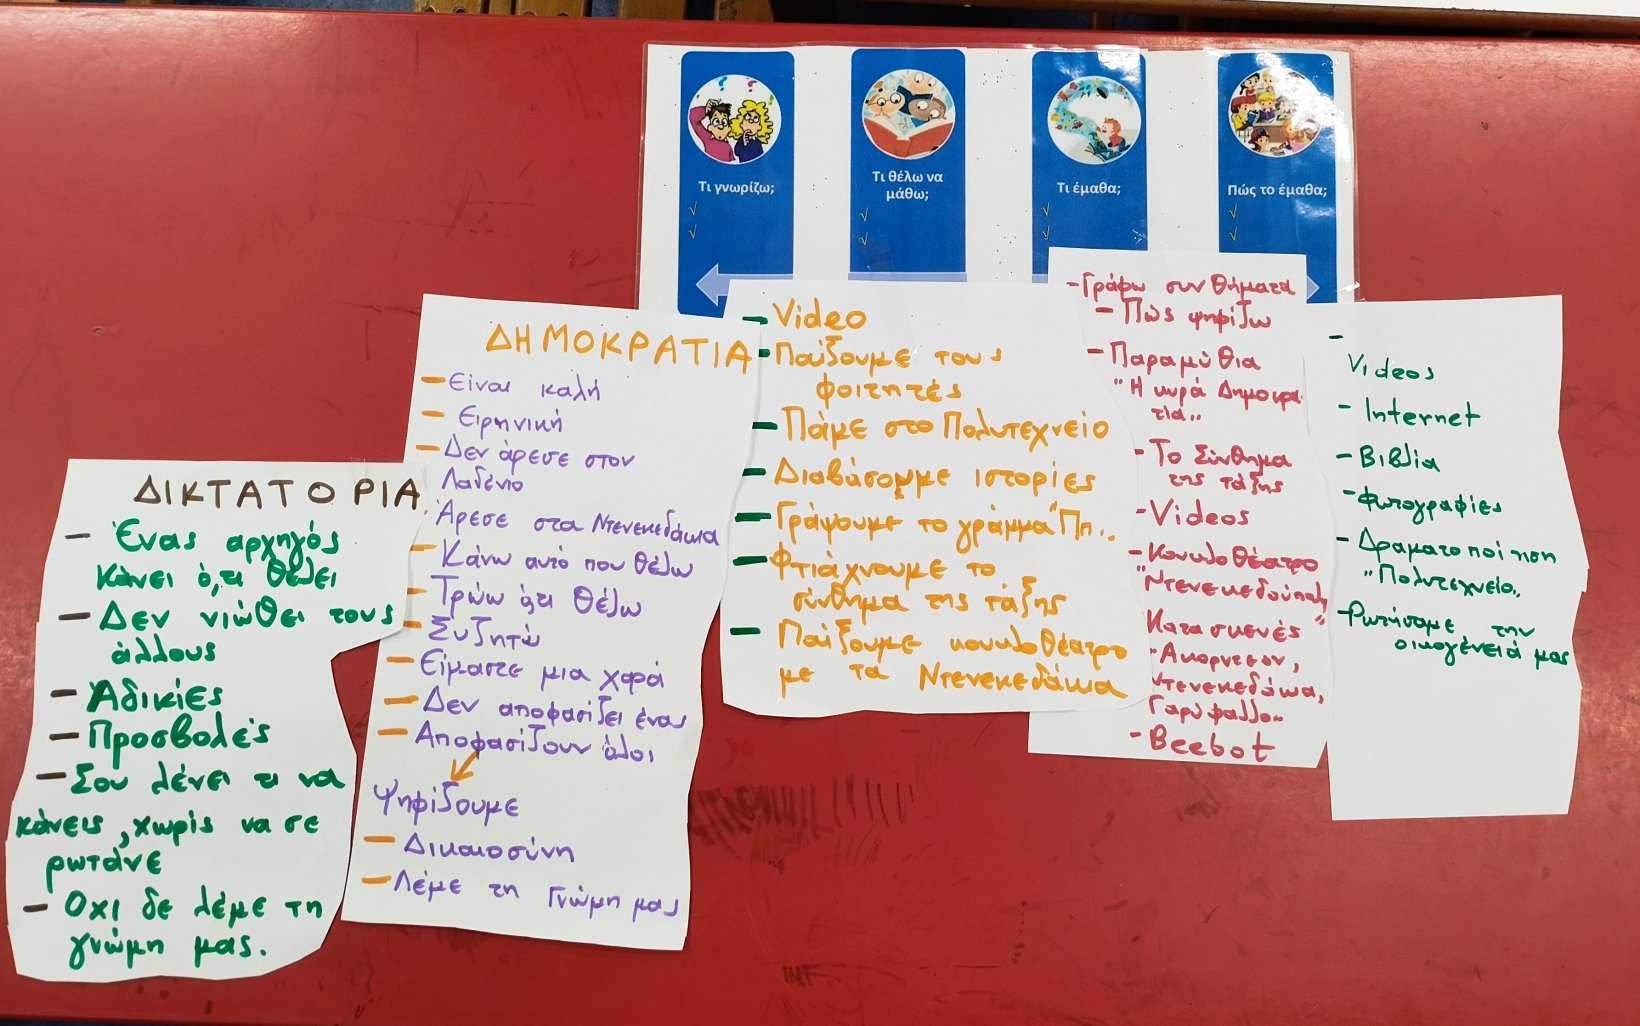 Τι γνωρίζω;
√
√
Τι θέλω να
μάθω;
√
√
Τι έμαθα;
√
√
Πώς το έμαθα;
√
√
ΔΙΚΤΑΤΟΡΙΑ
- Ένας αρχηγός
κάνει ό,τι θέλει
- Δεν νιώθει τους
άλλους
- Αδικίες
- Προσβολές
- Σου λένε τι να
κάνεις, χωρίς να σε
ρωτάνε
- Οχι δε λέμε τη
γνώμη μας.
ΔΗΜΟΚΡΑΤΙΑ
- Είναι καλή
- Ειρηνική
- Δεν άρεσε στον
Λαδένιο
Άρεσε στα Ντενεκεδάκια
- Κάνω αυτό που θέλω
- Τρώω ό,τι θέλω
- Συζητώ
- Είμαστε μια χαρά
- Δεν αποφασίζει ένας
- Αποφασίζουν όλοι
Ψηφίζουμε
- Δικαιοσύνη
- Λέμε τη γνώμη μας
- Video
- Παίζουμε τους
φοιτητές
- Πάμε στο Πολυτεχνείο
- Διαβάσουμε ιστορίες
- Γράψουμε το γράμμα "Πη"
- Φτιάχνουμε το
σύνθημα της τάξης
- Παίζουμε κουκλοθέατρο
με τα Ντενεκεδάκια
- Γράφω συνθήματα
- Πώς ψηφίζω
- Παραμύθια
"Η κυρά Δημοκρα
τία"
- Το Σύνθημα
της τάξης
- Videos
- Κουκλοθέατρο
"Ντενεκεδούπολη"
Κατασκευές
- Ακορντεον,
Ντενεκεδάκια,
Γαρύφαλλο
- Beebot
-
Videos
- Internet
- Βιβλία
- Φωτογραφίες
- Δραματοποίηση
"Πολυτεχνείο"
- Ρωτήσαμε την
οικογένειά μας